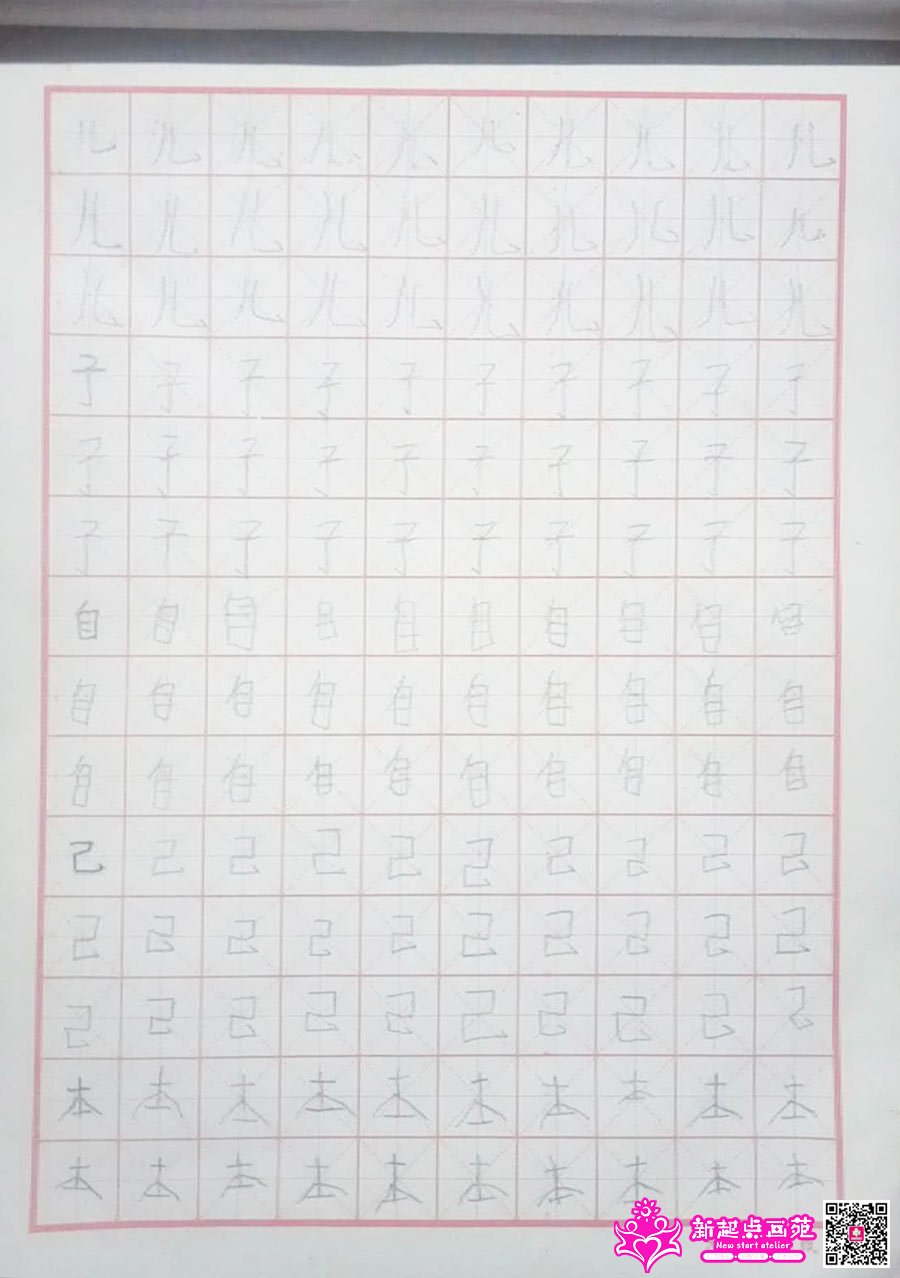 儿儿儿儿儿儿儿儿儿儿
儿儿儿儿儿儿儿儿儿儿
儿儿儿儿儿儿儿儿儿儿
子子子子子子子子子子
子子子子子子子子子子
子子子子子子子子子子
自自自自自自自自自自
自自自自自自自自自自
自自自自自自自自自自
己己己己己己己己己己
己己己己己己己己己己
己己己己己己己己己己
本本本本本本本本本本
本本本本本本本本本本
新起点画苑
New start atelier